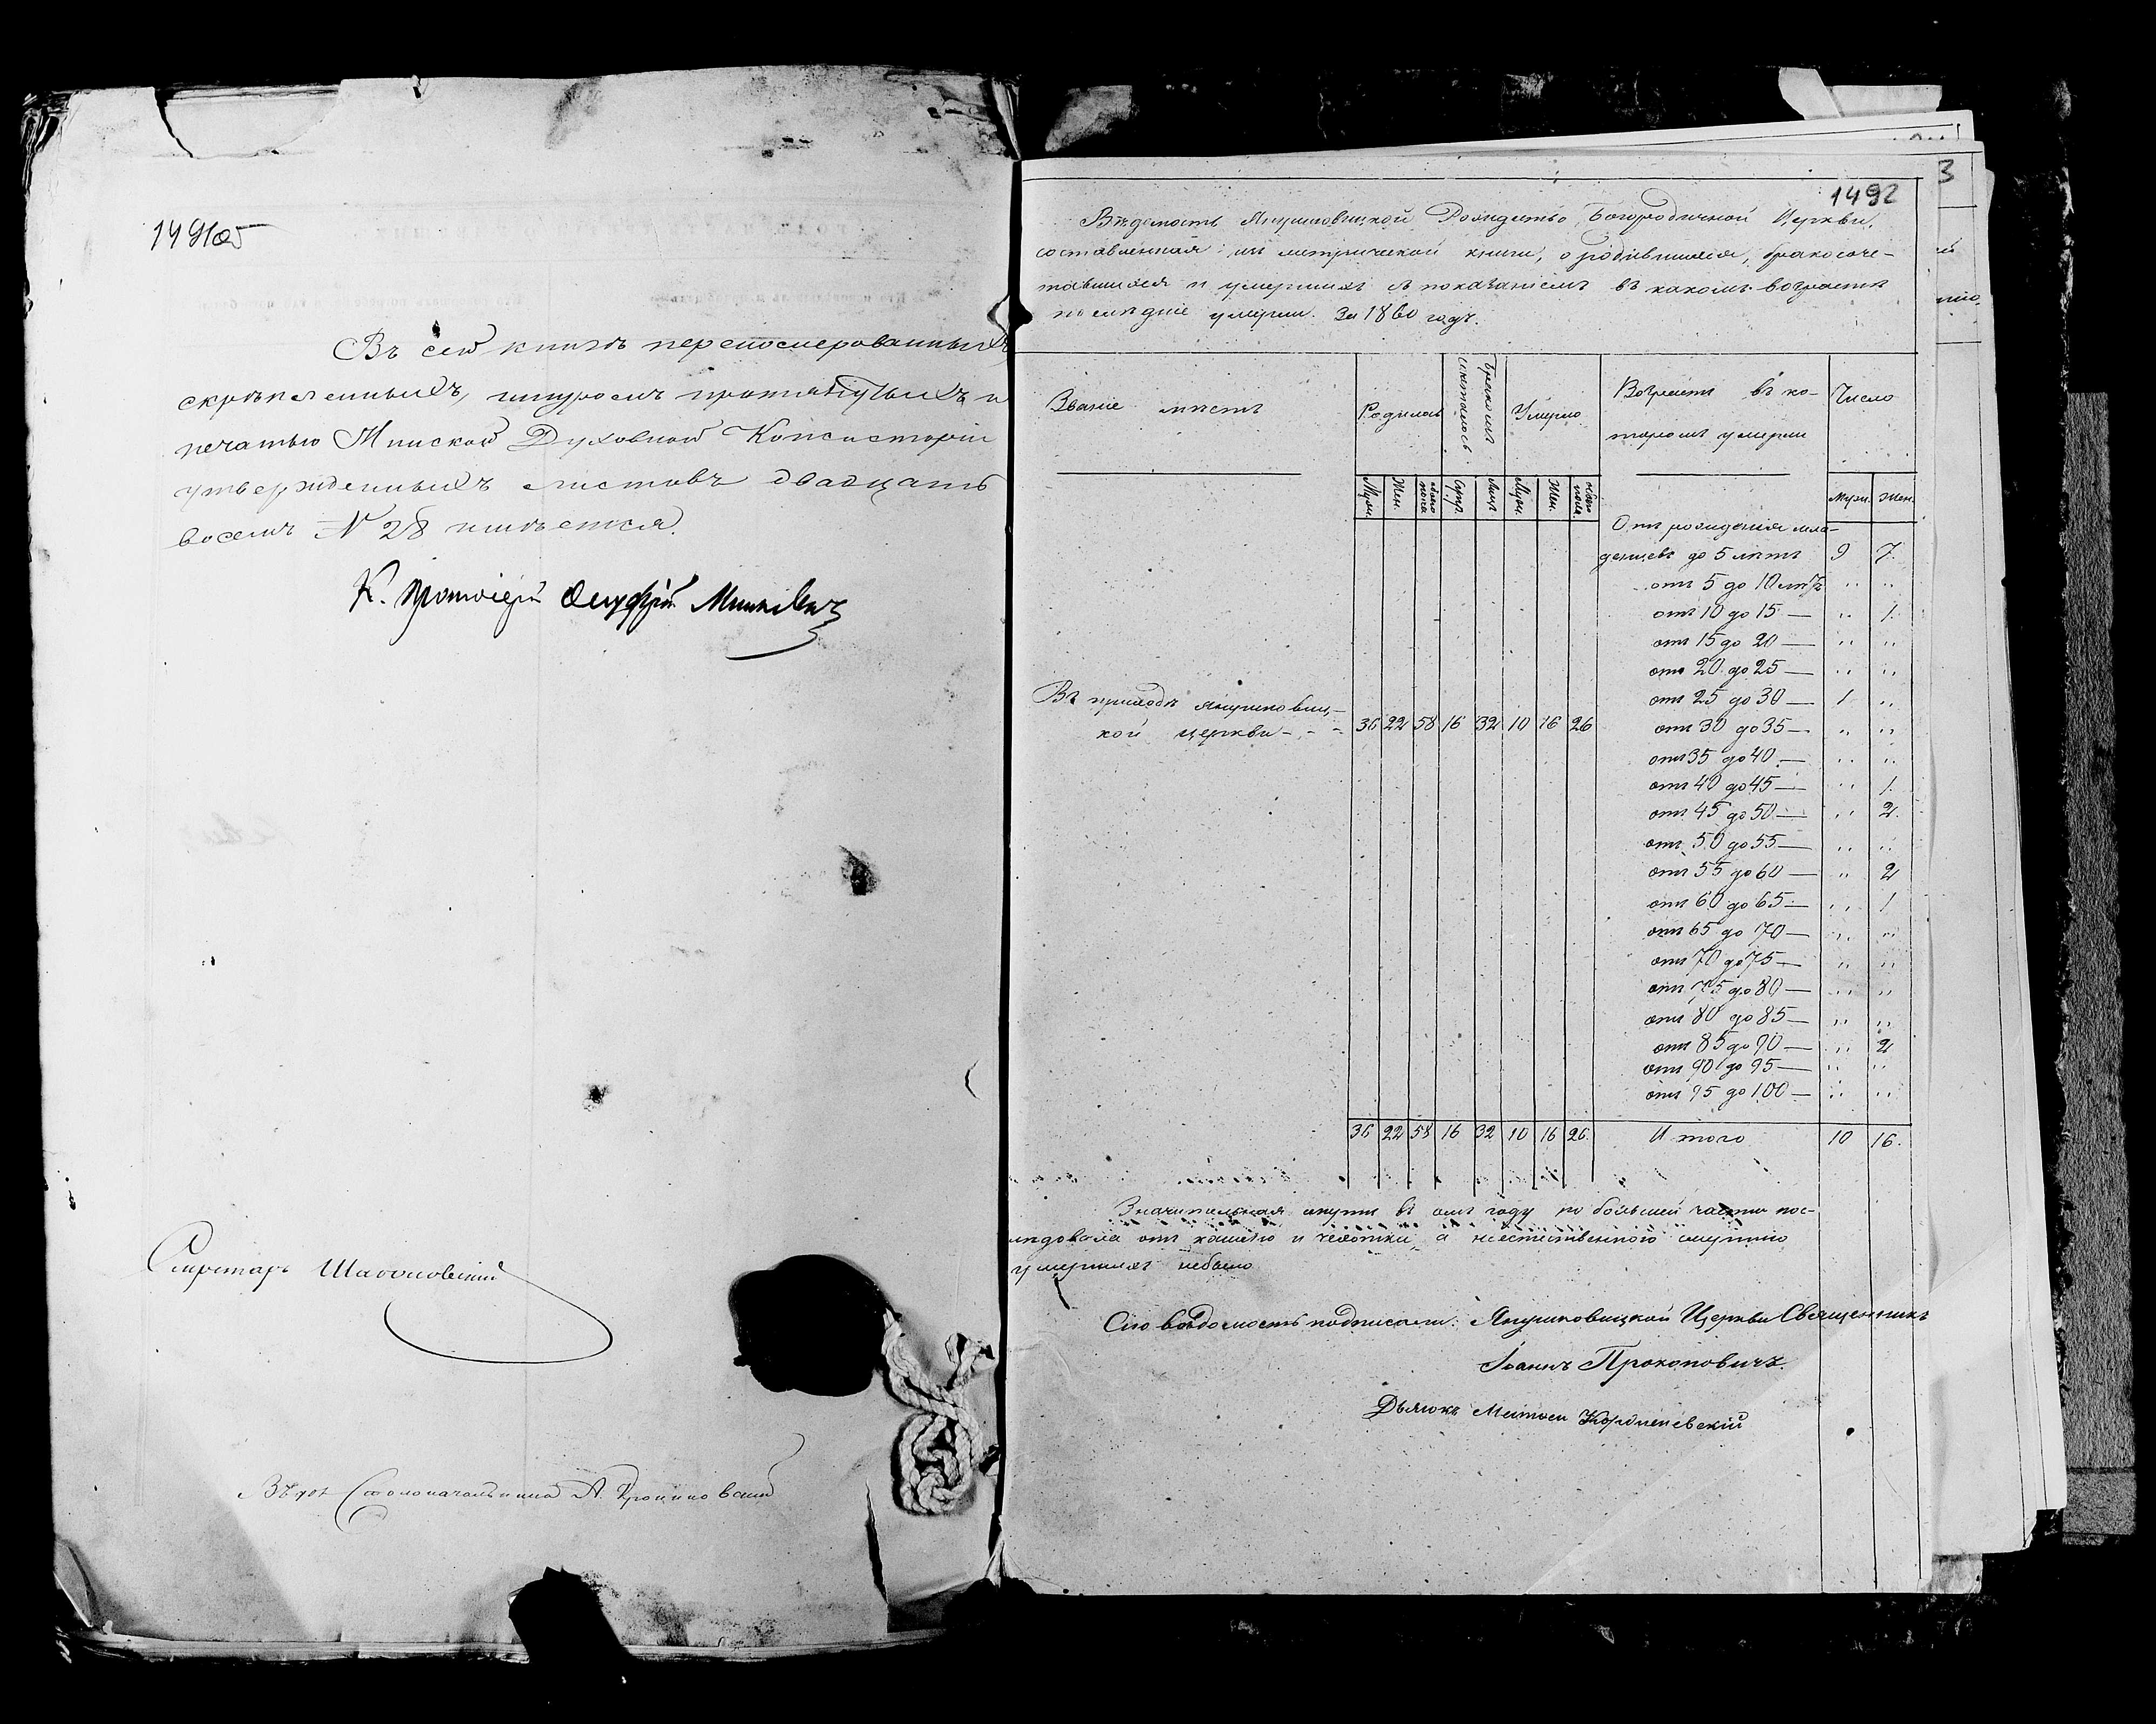 1491об
Въ сей книгѣ перенумерованныхъ
скрѣпленныхъ, шнуромъ протянутыхъ и
печатью Минской Духовной Консисторіи
утвержденныхъ листовъ двадцать
восемь № 28 имѣется.
К. Протоіерей Онуфрій
Секретарь
Столоначальника А.
1492
Вѣдомость Янушковицкой Рождество Богородичной Церкви,
составленная изъ метрической книги, о родившихся, бракосоче-
тавшихся и умершихъ съ показаніемъ въ какомъ возрастѣ
послѣдніе умерли. За 1860 годъ.
Званіе мѣстъ
Родилось
Бракомъ
сочеталось
Умерло
Возрастъ въ ко-
торомъ умерли
Число
Муж. Жен. обоего пола Супр. Лицъ Муж. Жен. обоего пола Муж. Жен.
Отъ рожденія мла-
денцевъ до 5 лѣтъ 9 7.
отъ 5 до 10 лѣтъ „ „
отъ 10 до 15 — „ 1.
отъ 15 до 20 — „ „
отъ 20 до 25 — „ „
отъ 25 до 30 — 1 „
Въ приходѣ Янушковиц-
кой церкви - - - 36 22 58 16 32 10 16 26
отъ 30 до 35 — „ „
отъ 35 до 40 — „ „
отъ 40 до 45 — „ 1.
отъ 45 до 50 — „ 2.
отъ 50 до 55 — „ „
отъ 55 до 60 — „ 2
отъ 60 до 65 — „ 1
отъ 65 до 70 — „ „
отъ 70 до 75 — „ „
отъ 75 до 80 — „ „
отъ 80 до 85 — „ „
отъ 85 до 90 — „ 2
отъ 90 до 95 — „ „
отъ 95 до 100 — „ „
36 22 58 16 32 10 16 26. Итого 10 16.
Значительная смерть въ семъ году по большей части пос-
лѣдовала отъ кашлю и чахотки, а неестественною смертію
умершихъ небыло
Сію вѣдомость подписали: Янушковицкой Церкви Священникъ
Іоаннъ Прокоповичъ.
Дьячокъ
3